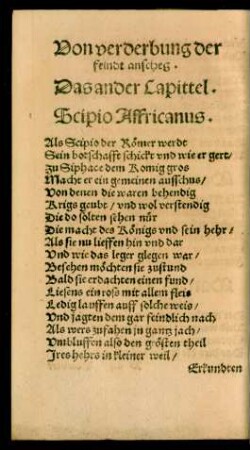 Von verderbung der
feindt anscheg.
Das ander Capittel.
Scipio Affricanus.
Als Scipio der Römer werdt
Sein botschafft schickt vnd wie er gert/
Zu Siphace dem Konig gros
Macht er ein gemeinen ausschus/
Von denen die waren behendig
Krigs geubt/ vnd wol verstendig
Die do solten sehen nür
Die macht des Königs vnd sein hehr/
Als sie nu lieffen hin vnd dar
Vnd wie das leger glegen war/
Besehen möchten sie zustund
Bald sie erdachten einen fund/
Liesens ein rosß mit allem fleis
Ledig lauffen auff solche weis/
Vnd jagten dem gar feindlich nach
Als wers zufahen jn gantz jach/
Vmbluffen also den grösten theil
Jres hehrs in kleiner weil/
Erkundten